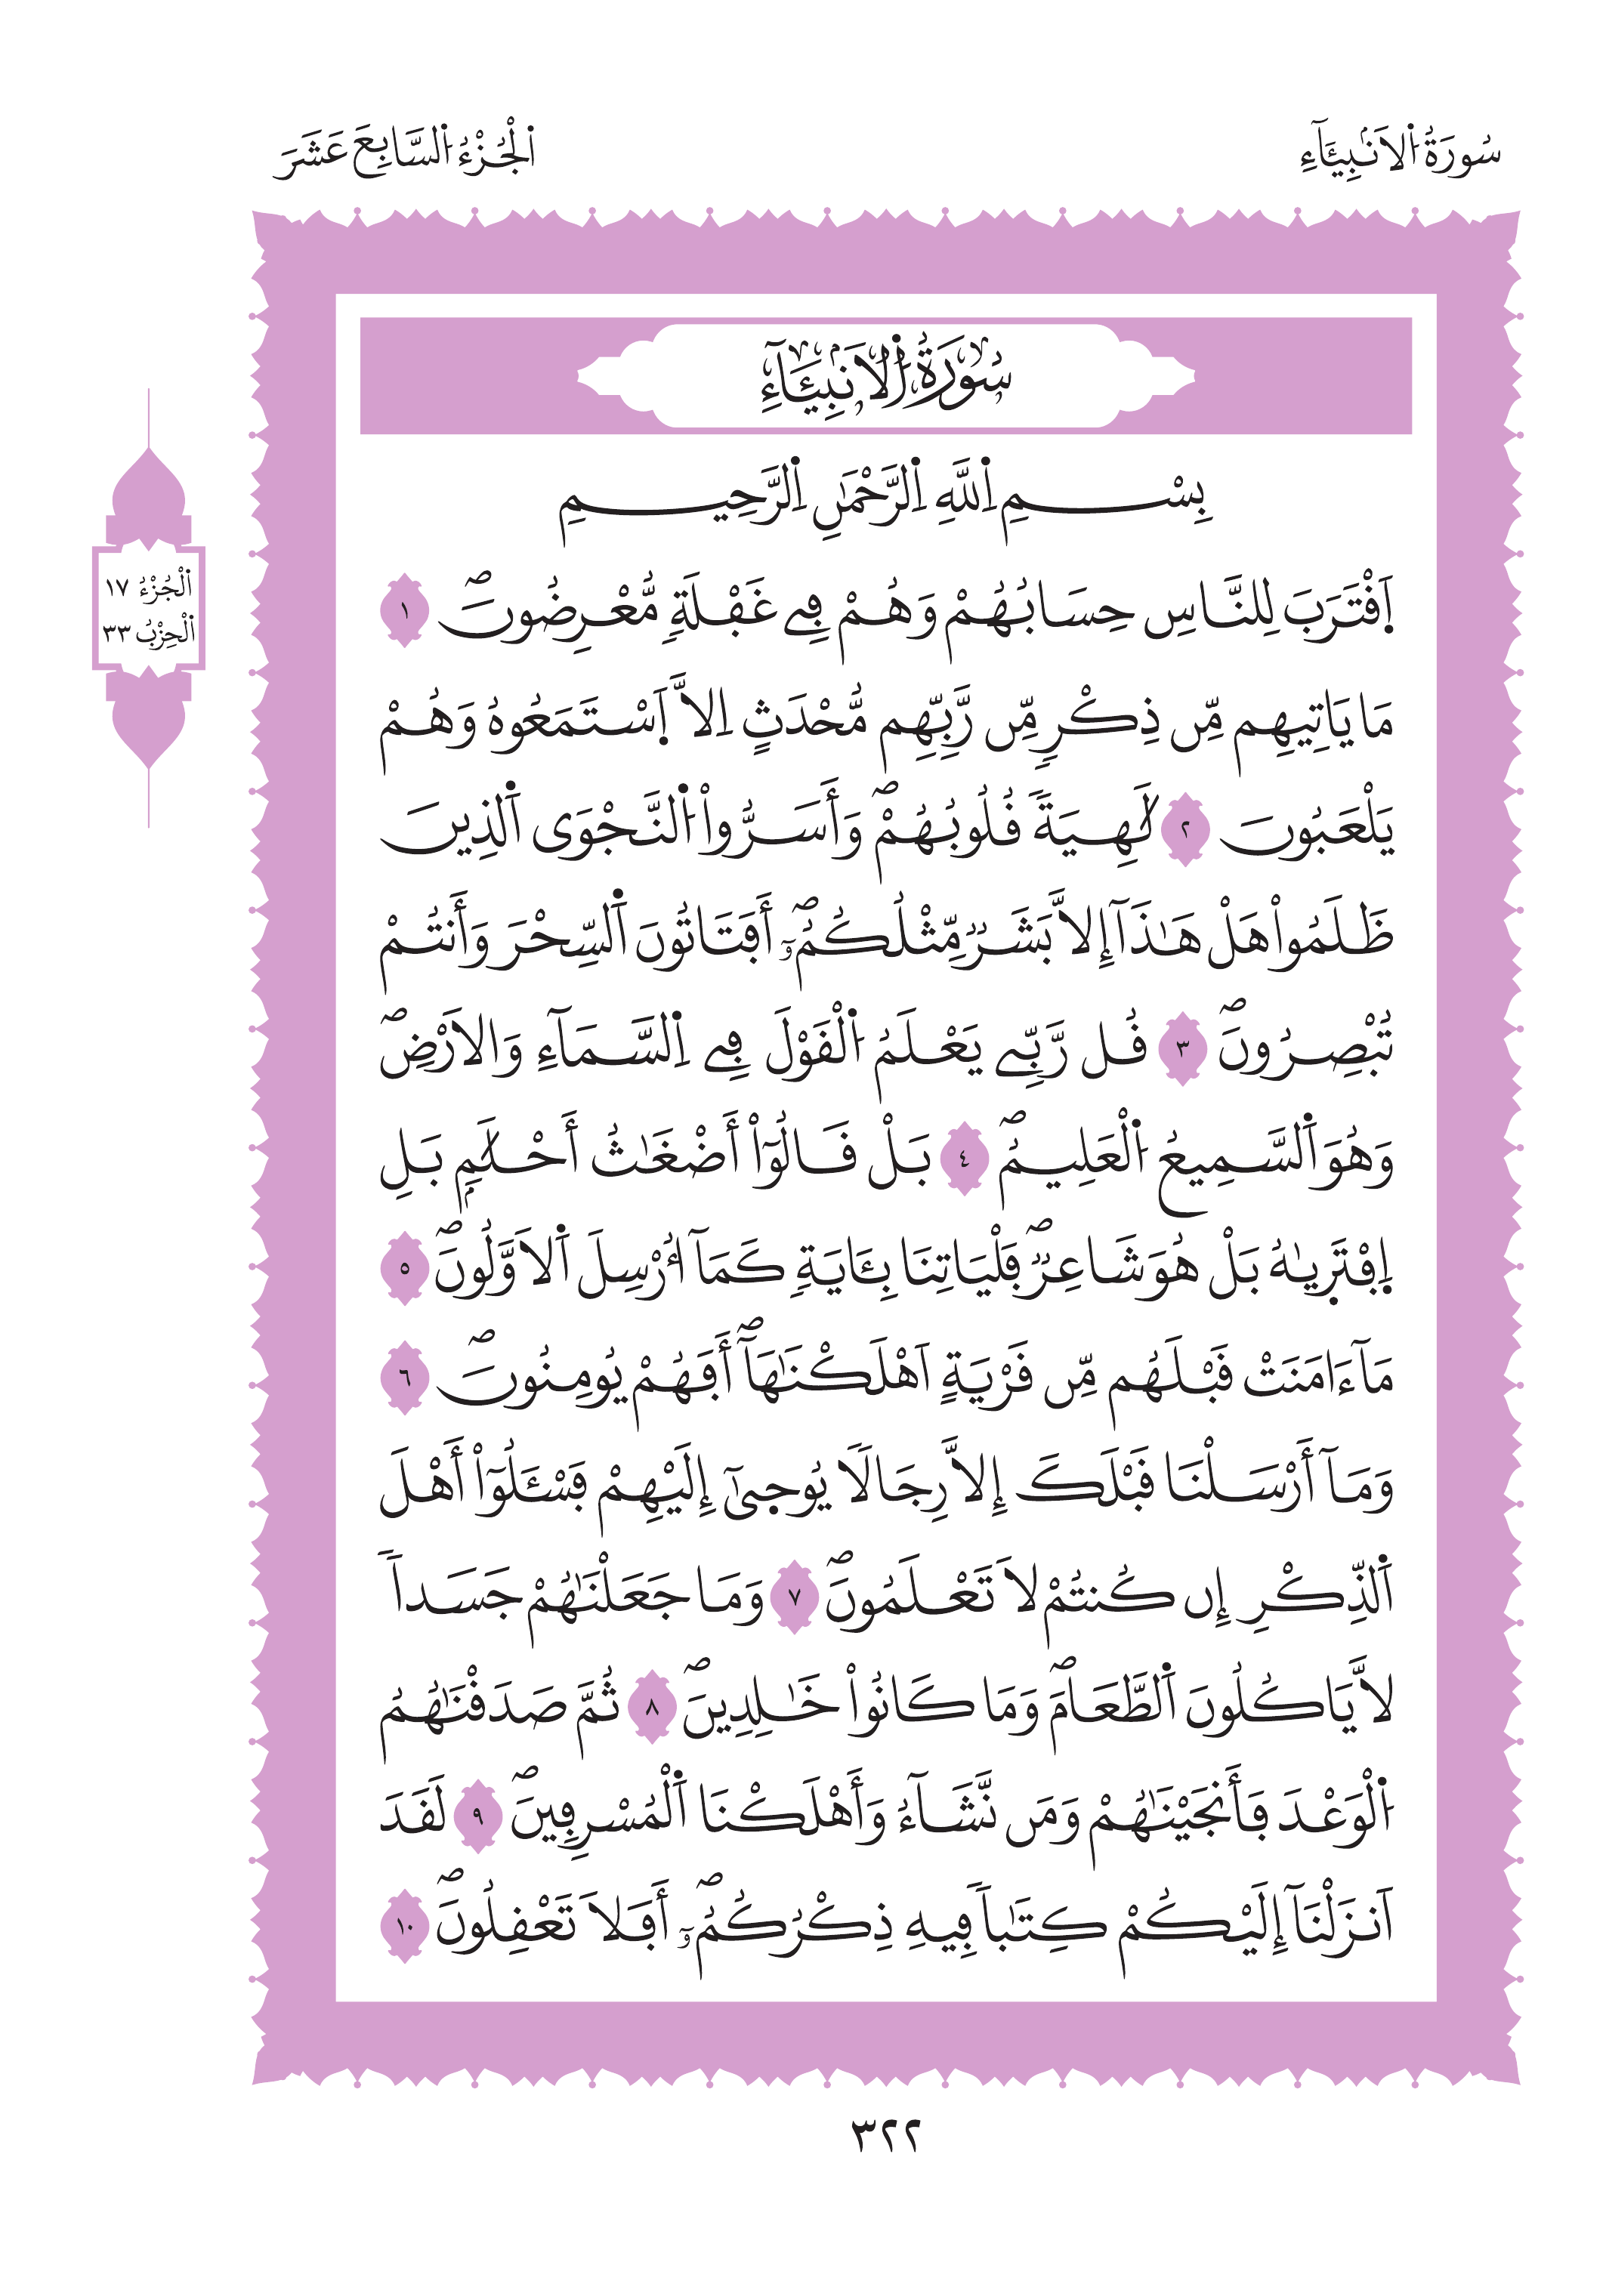 سُورَةُ اُ۬لَانۢبِيَآءِ
اَ۬لْجُزْءُ اُ۬لسَّابِعَ عَشَرَ
سُورَةُ اُ۬لَانۢبِيَآءِ
اَ۬لْجُزْءُ ١٧
اَ۬لْحِزْبُ ٣٣
بِسْمِ اِ۬للَّهِ اِ۬لرَّحْمَٰنِ اِ۬لرَّحِيمِ
اَ۪قْتَرَبَ لِلنَّاسِ حِسَابُهُمْ وَهُمْ فِے غَفْلَةٖ مُّعْرِضُونَۖ ١
مَا يَاتِيهِم مِّن ذِكْرٖ مِّن رَّبِّهِم مُّحْدَثٍ اِلَّا اَ۪سْتَمَعُوهُ وَهُمْ
يَلْعَبُونَ ٢ لَٰهِيَةٗ قُلُوبُهُمْۖ وَأَسَرُّواْ اُ۬لنَّجْوَى اَ۬لذِينَ
ظَلَمُواْ هَلْ هَٰذَآ إِلَّا بَشَرٞ مِّثْلُكُمُۥٓۖ أَفَتَاتُونَ اَ۬لسِّحْرَ وَأَنتُمْ
تُبْصِرُونَۖ ٣ قُل رَّبِّے يَعْلَمُ اُ۬لْقَوْلَ فِے اِ۬لسَّمَآءِ وَالَارْضِۖ
وَهُوَ اَ۬لسَّمِيعُ اُ۬لْعَلِيمُۖ ٤ بَلْ قَالُوٓاْ أَضْغَٰثُ أَحْلَٰمِۢ بَلِ
اِ۪فْتَر۪يٰهُ بَلْ هُوَ شَاعِرٞۖ فَلْيَاتِنَا بِـَٔايَةٖ كَمَآ أُرْسِلَ اَ۬لَاوَّلُونَۖ ٥
مَآ ءَامَنَتْ قَبْلَهُم مِّن قَرْيَةٍ اَهْلَكْنَٰهَآۖ أَفَهُمْ يُومِنُونَۖ ٦
وَمَآ أَرْسَلْنَا قَبْلَكَ إِلَّا رِجَالٗا يُوح۪يٰٓ إِلَيْهِمْ فَسْـَٔلُوٓاْ أَهْلَ
اَ۬لذِّكْرِ إِن كُنتُمْ لَا تَعْلَمُونَۖ ٧ وَمَا جَعَلْنَٰهُمْ جَسَداٗ
لَّا يَاكُلُونَ اَ۬لطَّعَامَۖ وَمَا كَانُواْ خَٰلِدِينَۖ ٨ ثُمَّ صَدَقْنَٰهُمُ
اُ۬لْوَعْدَ فَأَنجَيْنَٰهُمْ وَمَن نَّشَآءُ وَأَهْلَكْنَا اَ۬لْمُسْرِفِينَۖ ٩ لَقَدَ
اَنزَلْنَآ إِلَيْكُمْ كِتَٰباٗ فِيهِ ذِكْرُكُمُۥٓۖ أَفَلَا تَعْقِلُونَۖ ١٠
٣٢٢